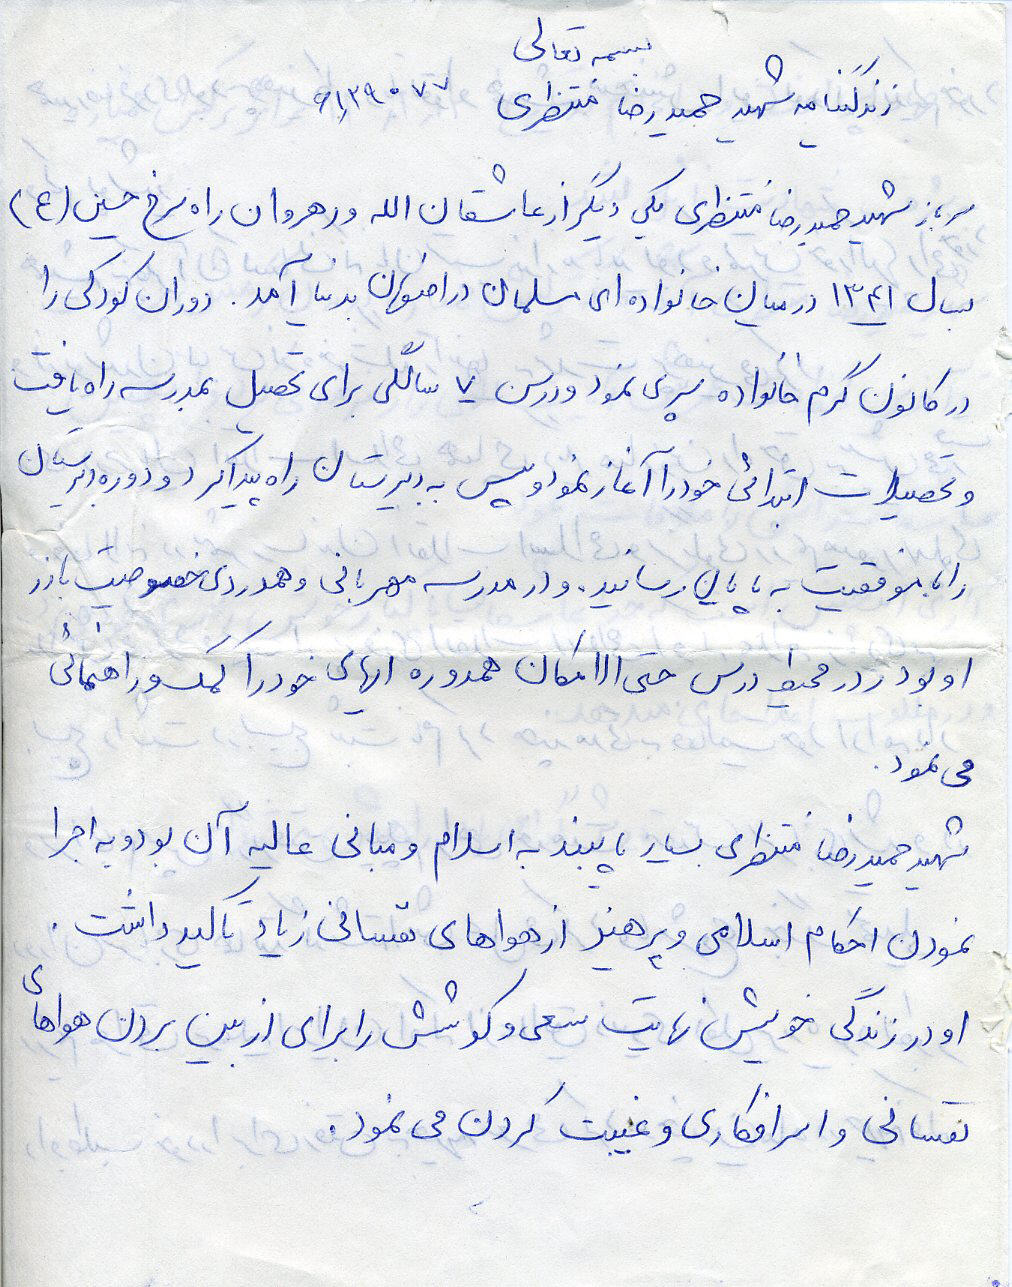 بسمه تعالی
زندگینامه شهید حمیدرضا منتظری ۶۱۳۹۰۷۷
سرباز شهید حمیدرضا منتظری یکی دیگر از عاشقان الله و رهروان راه سرخ حسین (ع)
بسال ۱۳۴۱ در میان خانواده ای مسلمان در اصفهان بدنیا آمد. دوران کودکی را
در کانون گرم خانواده سپری نمود و در سن ۷ سالگی برای تحصیل بمدرسه راه یافت
و تحصیلات ابتدائی خود را آغاز نمود و سپس به دبیرستان راه پیدا کرد و دوره دبیرستان
را با موفقیت به پایان رسانید. و در مدرسه مهربانی و همدردی خصوصیت بارز
او بود و در محیط درس حتی الامکان همدوره ایهای خود را کمک و راهنمائی
می نمود.
شهید حمیدرضا منتظری بسیار پایبند به اسلام و مبانی عالیه آن بود و به اجرا
نمودن احکام اسلامی و پرهیز از هواهای نفسانی زیاد تاکید داشت.
او در زندگی خویش نهایت سعی و کوشش را برای از بین بردن هواهای
نفسانی و اسرافکاری و غیبت کردن می نمود.